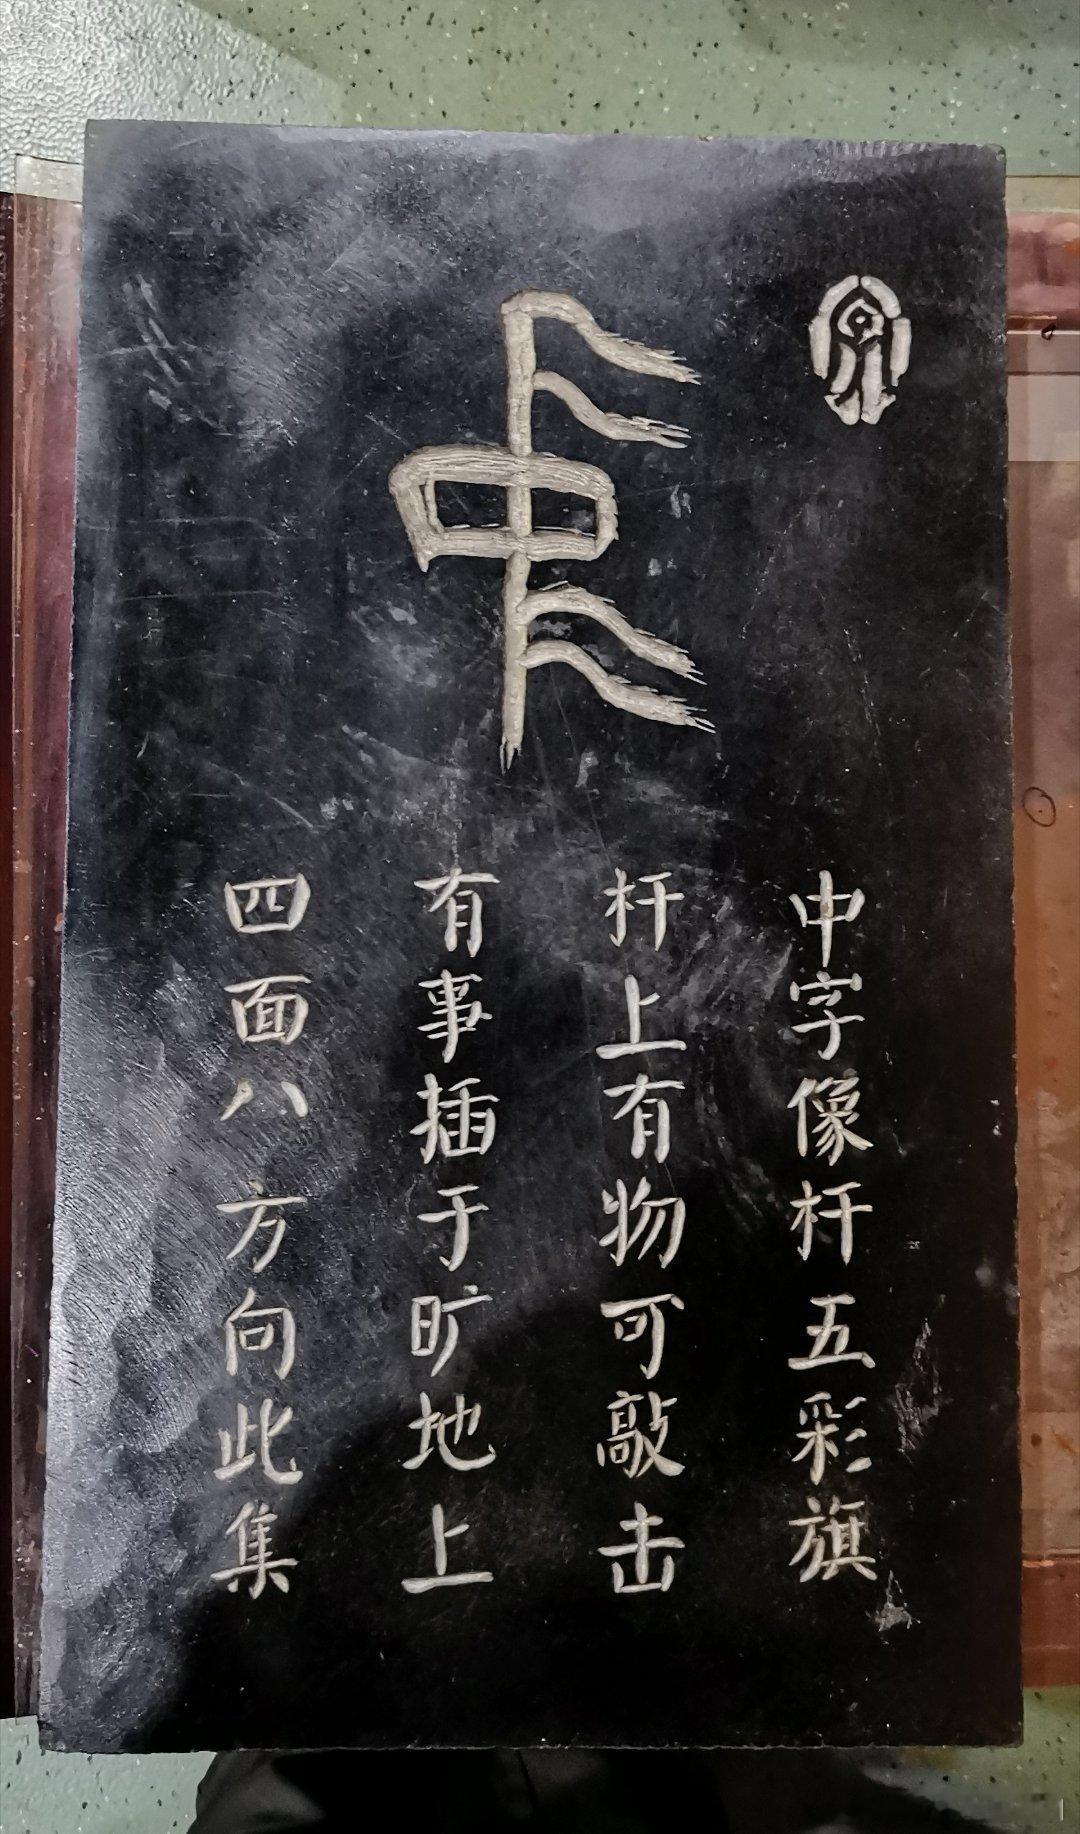 中
中字像杆五彩旗
杆上有物可敲击
有事插于旷地上
四面八方向此集